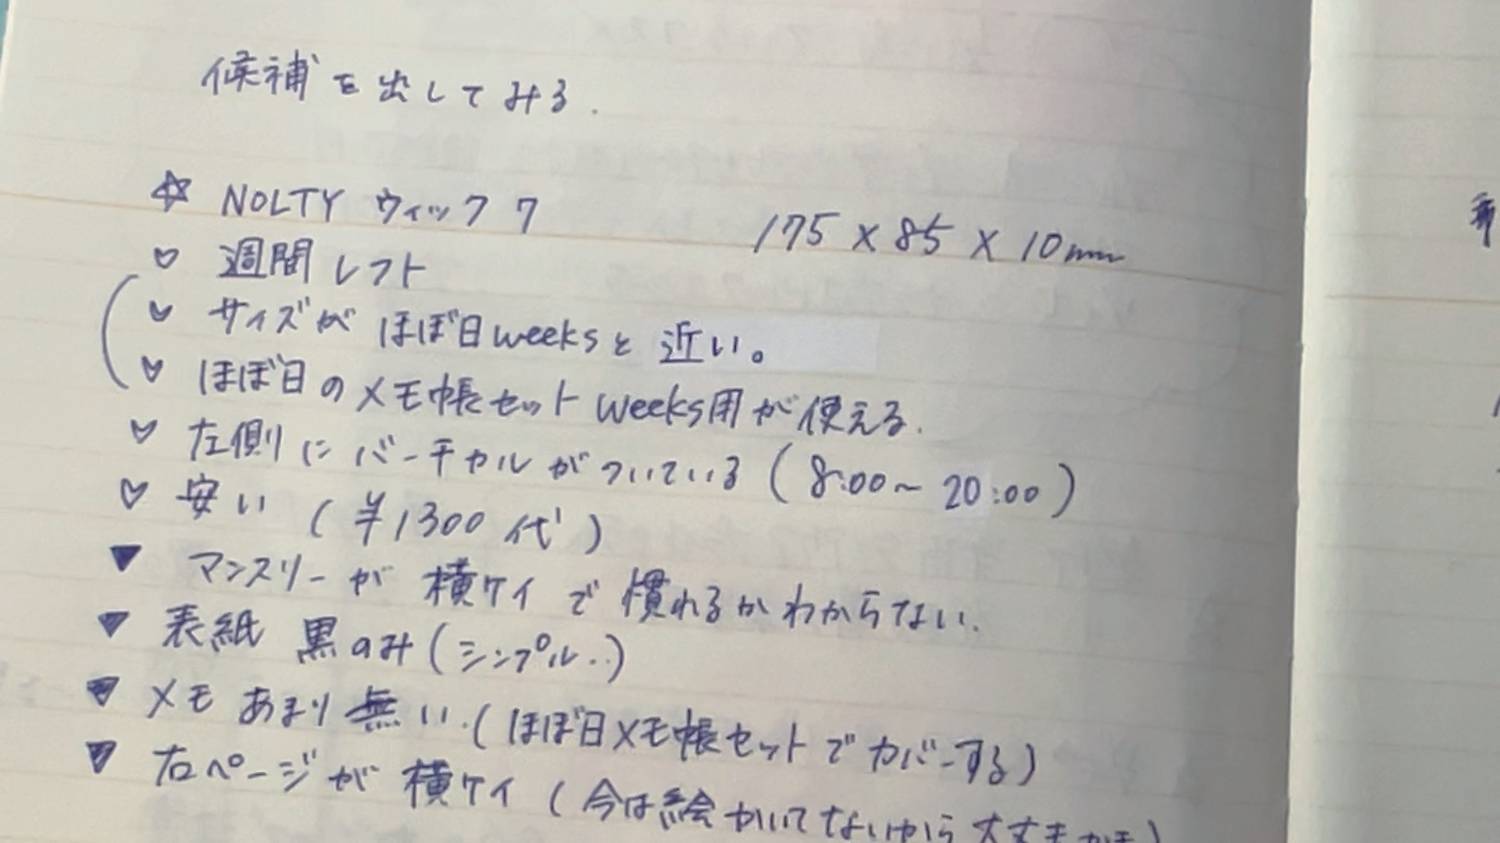 候補を出してみる.
☆ NOLTY ウィック 7 175 × 85 × 10mm
♡ 週間レフト
♡ サイズが ほぼ日weeksと 近い。
♡ ほぼ日のメモ帳セット weeks用が使える.
♡ 左側に バーチャルがついている (8:00~20:00)
♡ 安い (¥1300代)
▼ マンスリーが 横ケイで慣れるかわからない.
▼ 表紙 黒のみ(シンプル..)
▼ メモ あまり無い.(ほぼ日メモ帳セットでカバーする)
▼ 右ページが 横ケイ (今は絵かいてないから大丈夫かも)